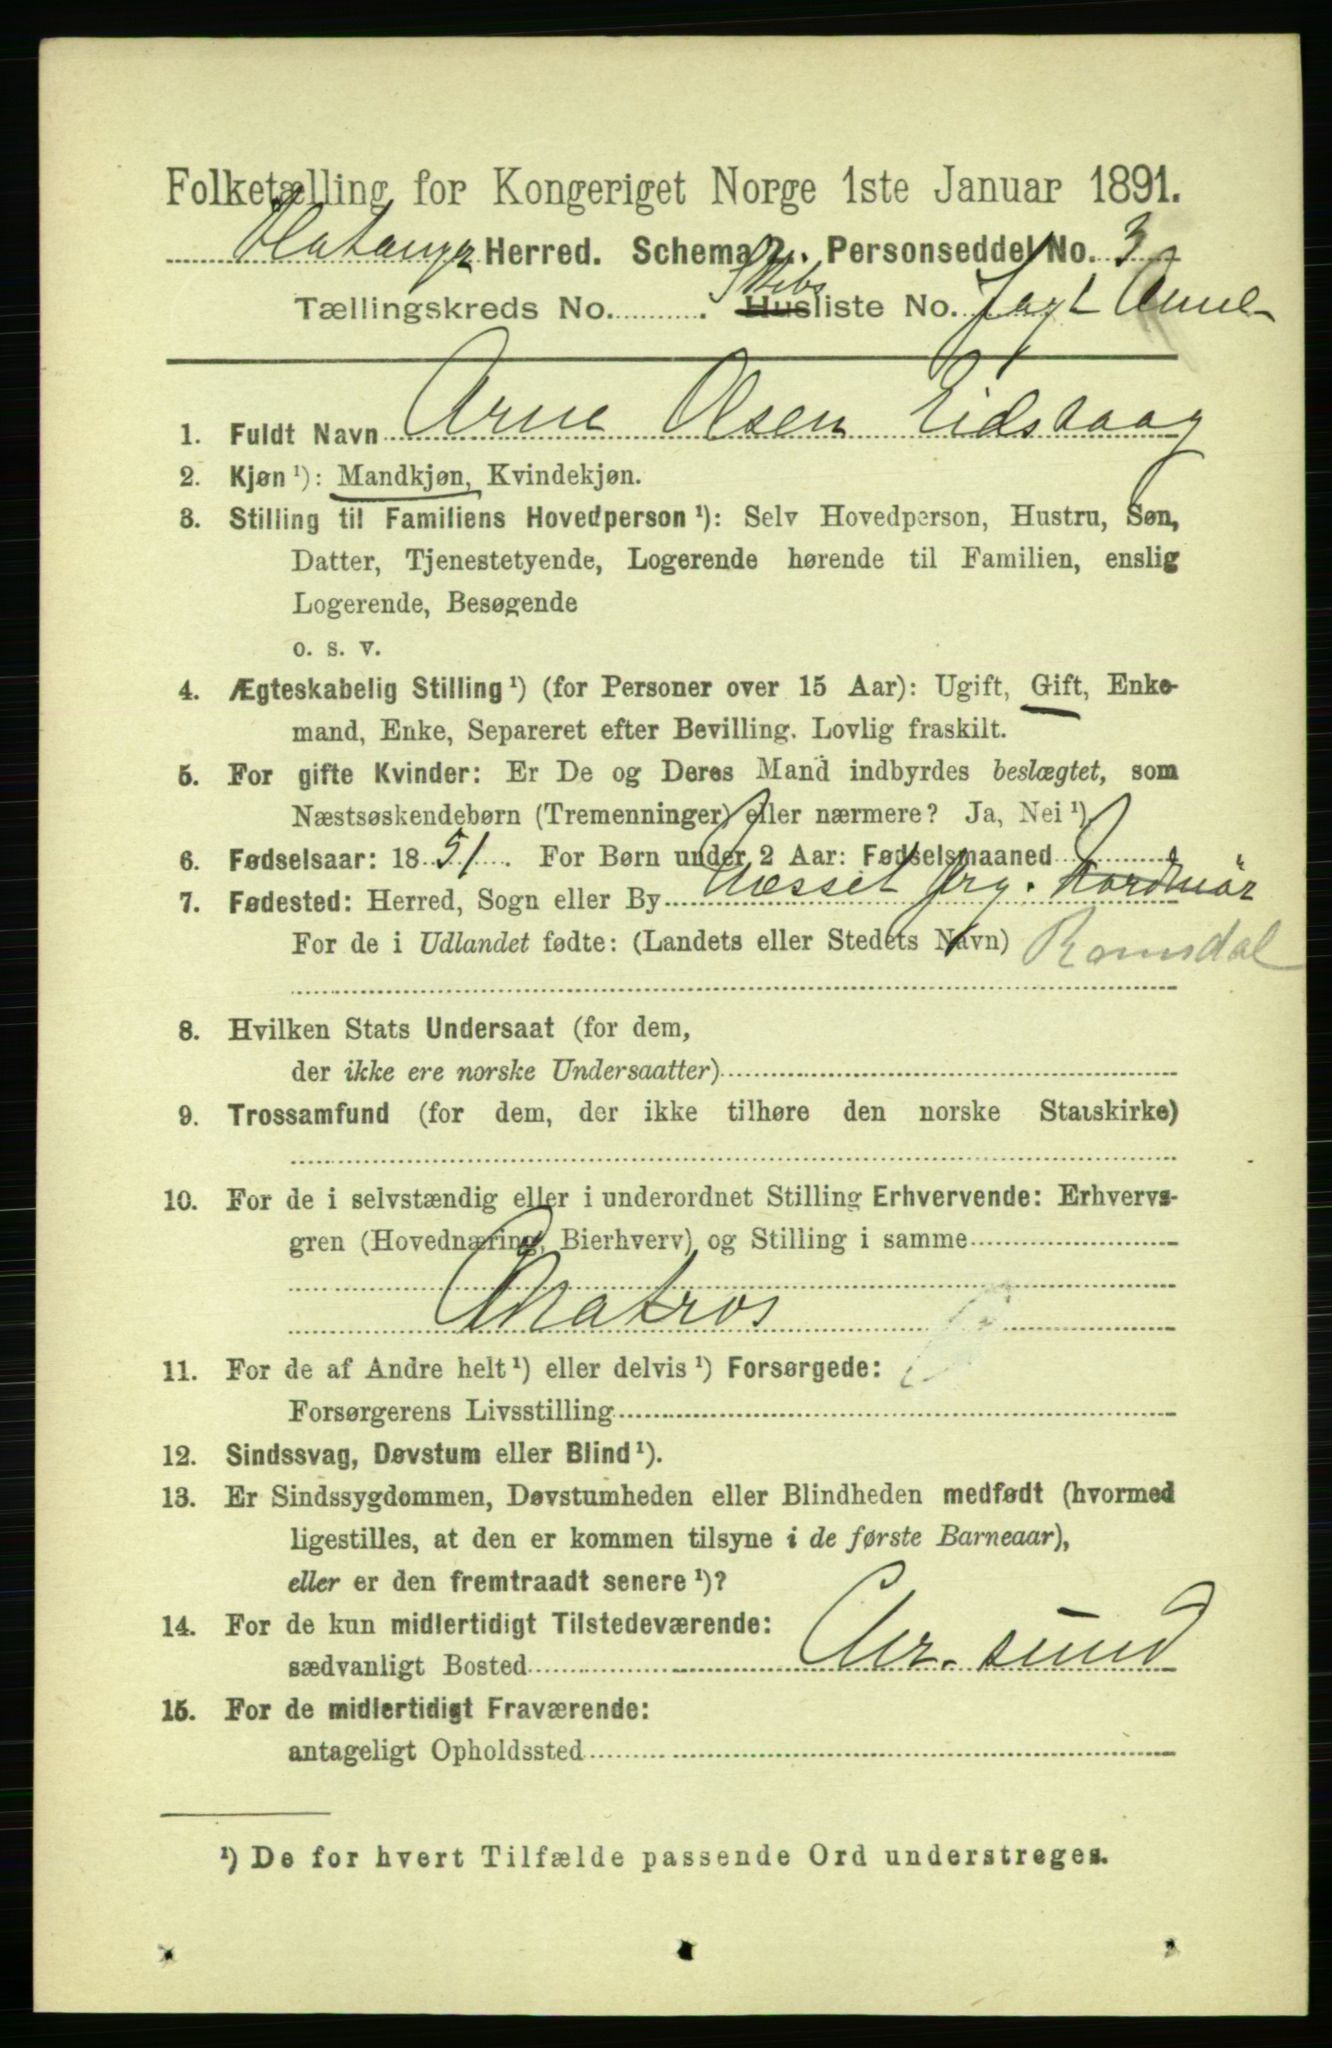 Folketælling for Kongeriget Norge 1ste Januar 1891.
Flatanger Herred. Schema 2. Personseddel No. 3
Tællingskreds No. . Skibs Husliste No. Jagt Anne
1. Fuldt Navn Arne Olsen Eidsvaag
2. Kjøn ¹): Mandkjøn, Kvindekjøn.
3. Stilling til Familiens Hovedperson ¹): Selv Hovedperson, Hustru, Søn,
Datter, Tjenestetyende, Logerende hørende til Familien, enslig
Logerende, Besøgende
o. s. v.
4. Ægteskabelig Stilling ¹) (for Personer over 15 Aar): Ugift, Gift, Enke-
mand, Enke, Separeret efter Bevilling. Lovlig fraskilt.
5. For gifte Kvinder: Er De og Deres Mand indbyrdes beslægtet, som
Næstsøskendebørn (Tremenninger) eller nærmere? Ja, Nei ¹)
6. Fødselsaar: 1851. For Børn under 2 Aar: Fødselsmaaned
7. Fødested: Herred, Sogn eller By Næsset Prg. Nordmör
For de i Udlandet fødte: (Landets eller Stedets Navn) Romsdal
8. Hvilken Stats Undersaat (for dem,
der ikke ere norske Undersaatter)
9. Trossamfund (for dem, der ikke tilhøre den norske Statskirke)
10. For de i selvstændig eller i underordnet Stilling Erhvervende: Erhvervs-
gren (Hovednæring, Bierhverv) og Stilling i samme
Matros
11. For de af Andre helt ¹) eller delvis ¹) Forsørgede:
Forsørgerens Livsstilling
12. Sindssvag, Døvstum eller Blind ¹).
13. Er Sindssygdommen, Døvstumheden eller Blindheden medfødt (hvormed
ligestilles, at den er kommen tilsyne i de første Barneaar),
eller er den fremtraadt senere ¹)?
14. For de kun midlertidigt Tilstedeværende:
sædvanligt Bosted Chr. sund
15. For de midlertidigt Fraværende:
antageligt Opholdssted
¹) De for hvert Tilfælde passende Ord understreges.